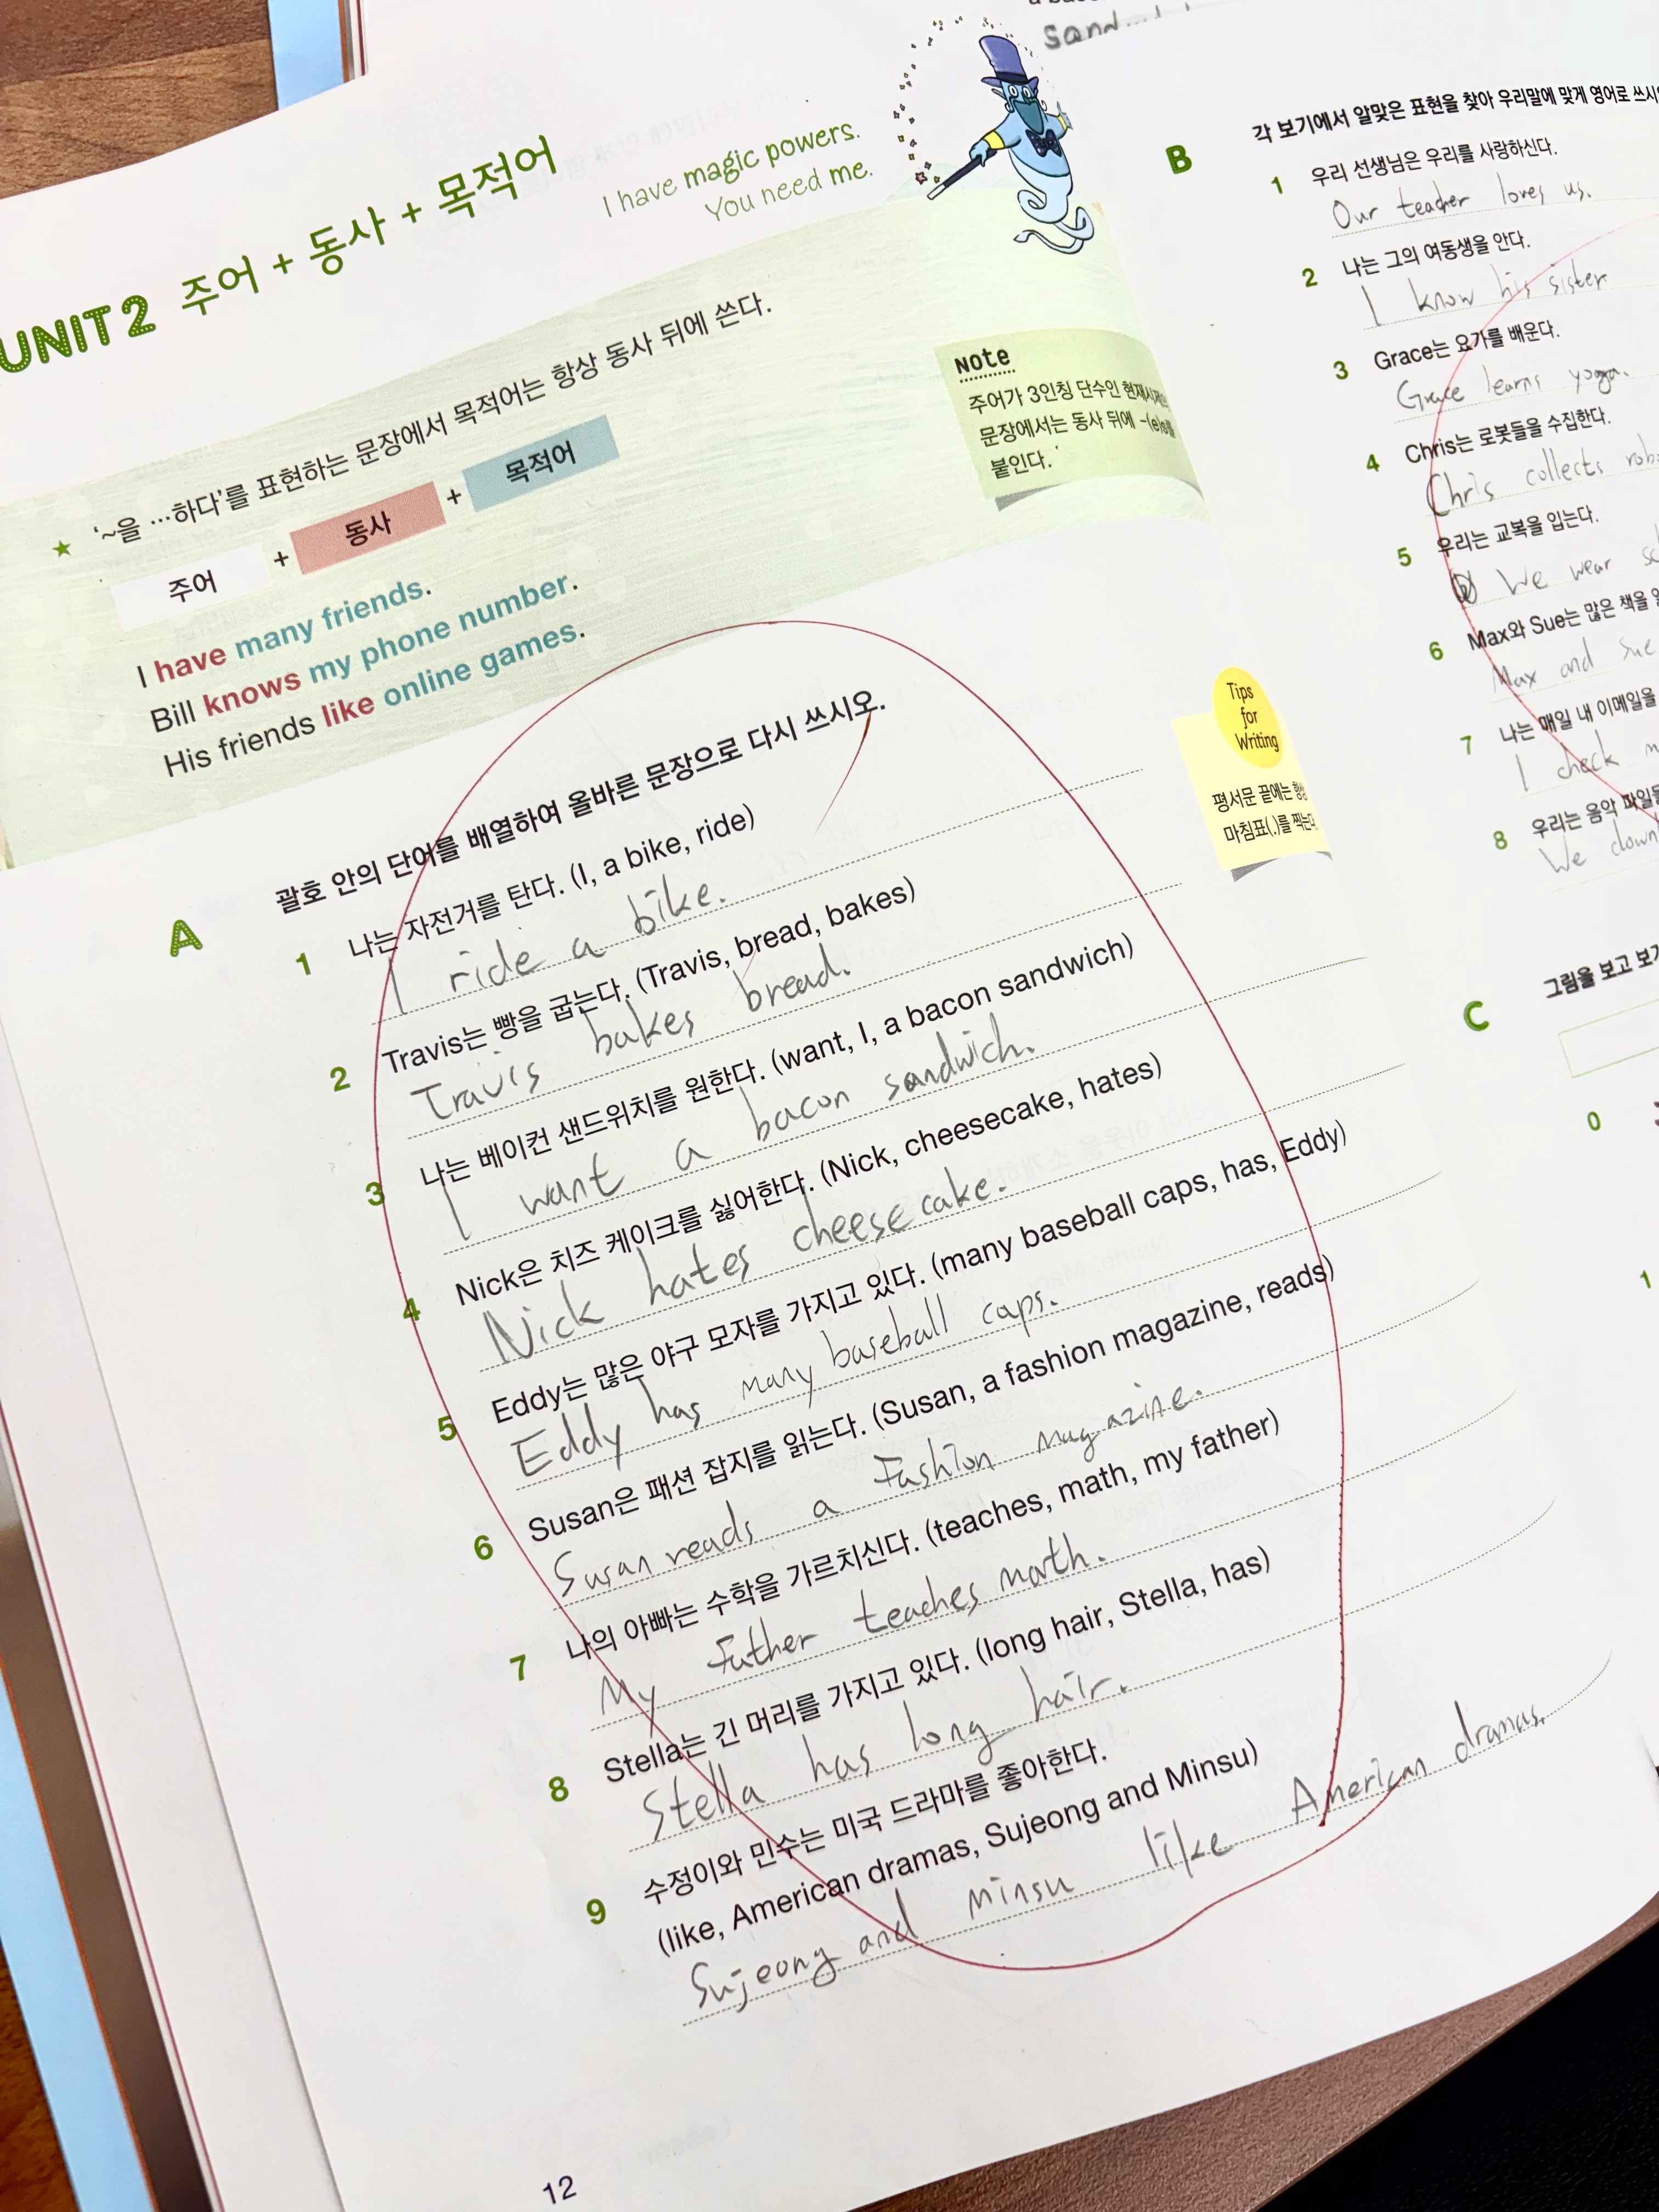 UNIT 2 주어 + 동사 + 목적어
I have magic powers.
You need me.
★ '~을 …하다'를 표현하는 문장에서 목적어는 항상 동사 뒤에 쓴다.
주어 + 동사 + 목적어
I have many friends.
Bill knows my phone number.
His friends like online games.
Note
주어가 3인칭 단수인 현재시제의
문장에서는 동사 뒤에 -(e)s를
붙인다.
Tips
for
Writing
평서문 끝에는 항상
마침표(.)를 찍는다.
A 괄호 안의 단어를 배열하여 올바른 문장으로 다시 쓰시오.
1 나는 자전거를 탄다. (I, a bike, ride)
I ride a bike.
2 Travis는 빵을 굽는다. (Travis, bread, bakes)
Travis bakes bread.
3 나는 베이컨 샌드위치를 원한다. (want, I, a bacon sandwich)
I want a bacon sandwich.
4 Nick은 치즈 케이크를 싫어한다. (Nick, cheesecake, hates)
Nick hates cheesecake.
5 Eddy는 많은 야구 모자를 가지고 있다. (many baseball caps, has, Eddy)
Eddy has many baseball caps.
6 Susan은 패션 잡지를 읽는다. (Susan, a fashion magazine, reads)
Susan reads a fashion magazine.
7 나의 아빠는 수학을 가르치신다. (teaches, math, my father)
My father teaches math.
8 Stella는 긴 머리를 가지고 있다. (long hair, Stella, has)
Stella has long hair.
9 수정이와 민수는 미국 드라마를 좋아한다.
(like, American dramas, Sujeong and Minsu)
Sujeong and Minsu like American dramas.
12
B 각 보기에서 알맞은 표현을 찾아 우리말에 맞게 영어로
1 우리 선생님은 우리를 사랑하신다.
Our teacher loves us.
2 나는 그의 여동생을 안다.
I know his sister
3 Grace는 요가를 배운다.
Grace learns yoga.
4 Chris는 로봇들을 수집한다.
Chris collects
5 우리는 교복을 입는다.
We wear
6 Max와 Sue는 많은 책을
Max and Sue
7 나는 매일 내 이메일을
I check
8 우리는 음악 파일들
We
C 그림을 보고
0
1